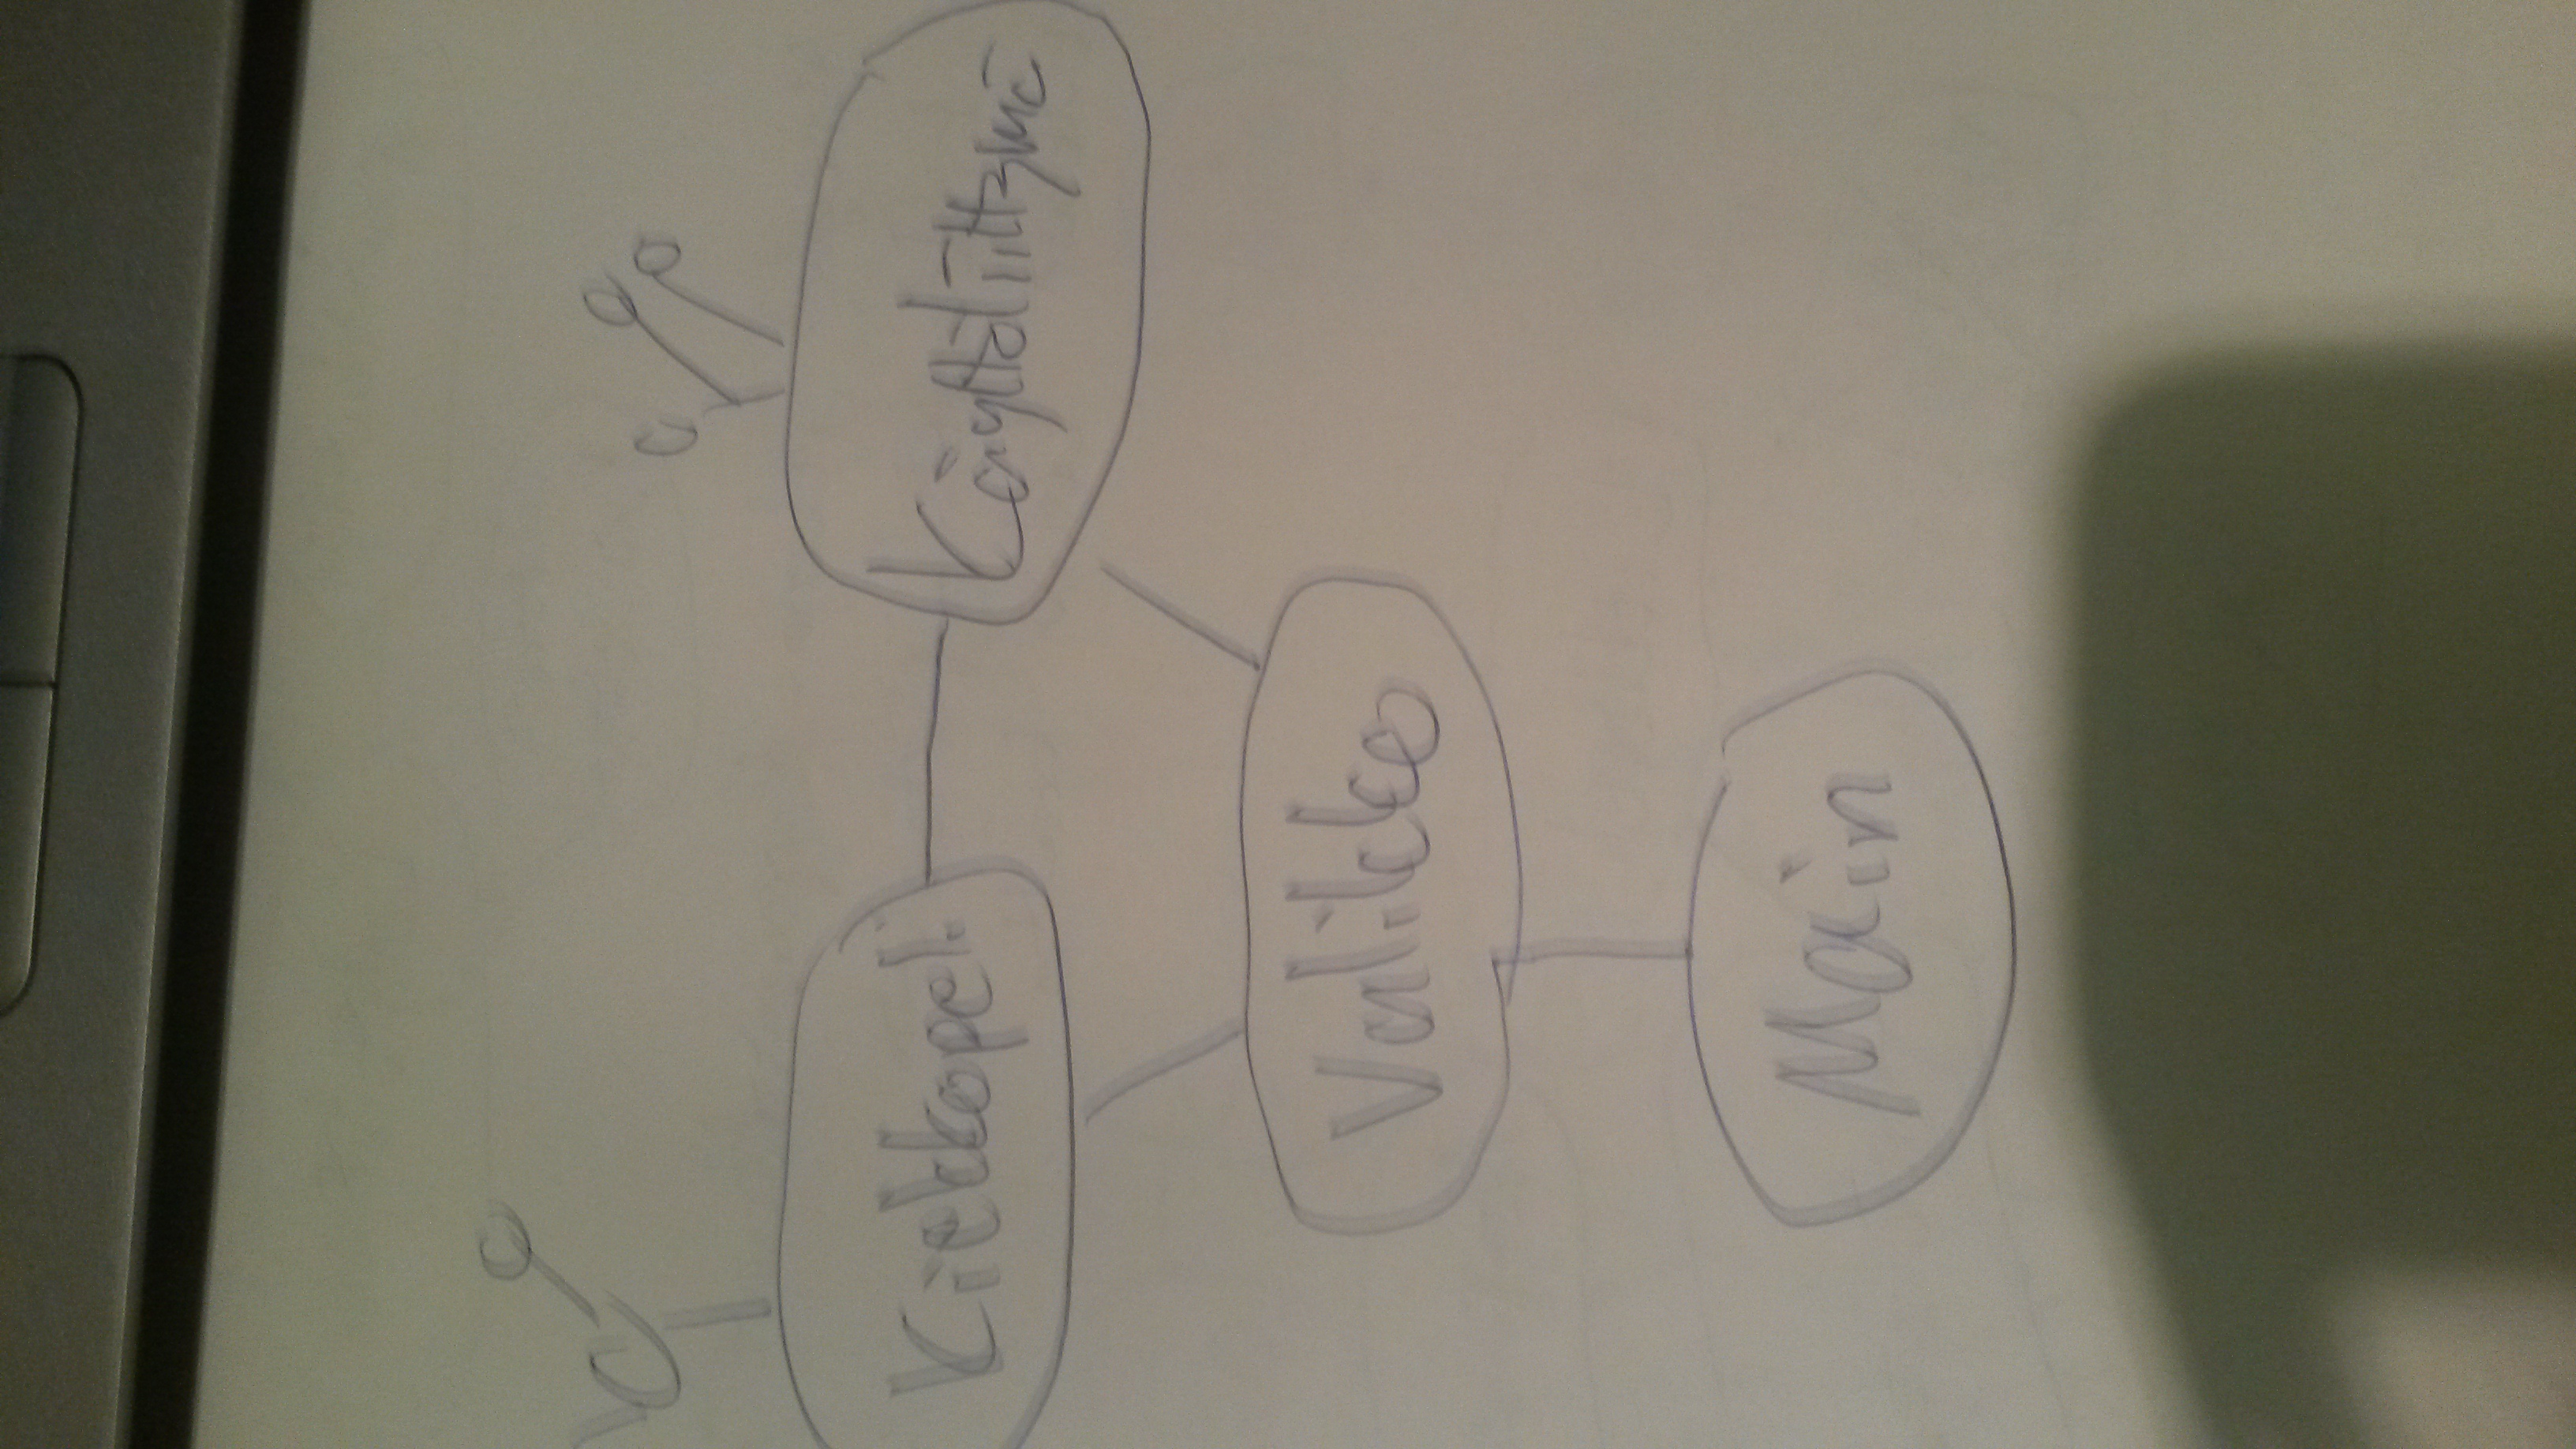 Kiekkopeli
Käyttöliittymä
Valikko
Main